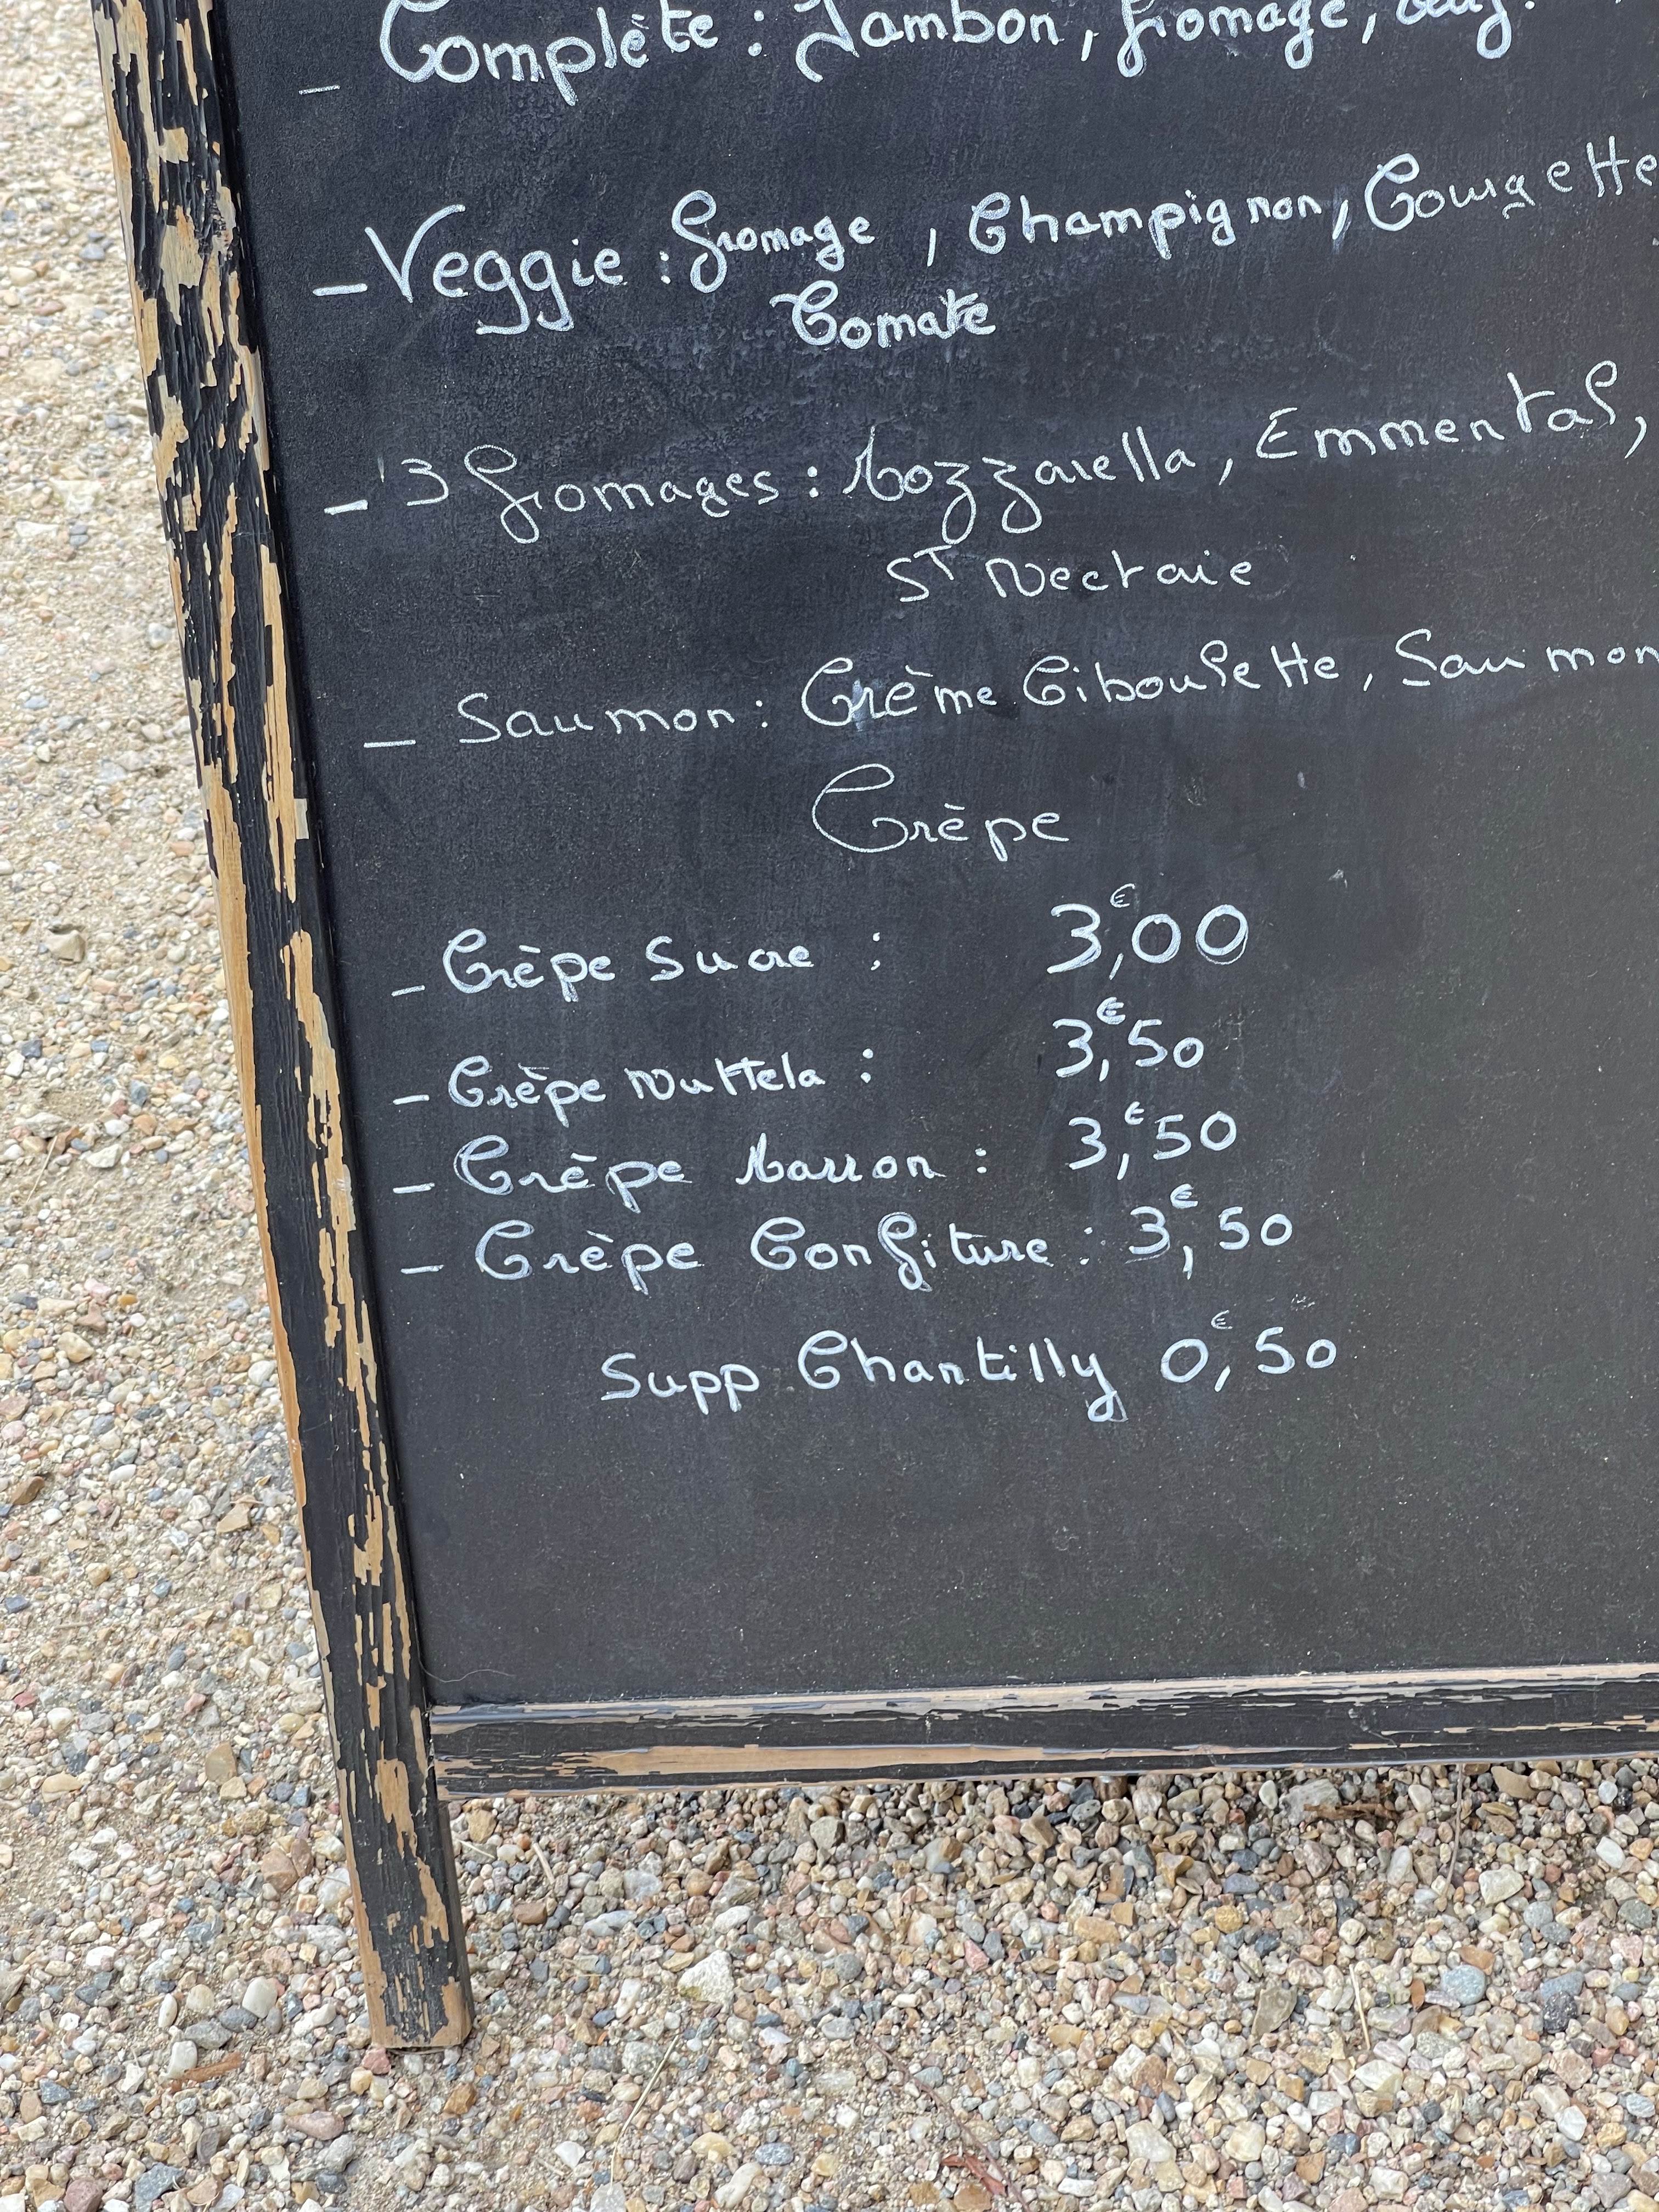 - Complète : Jambon, fromage, œuf.
- Veggie : fromage, Champignon, Courgette
Tomate
- 3 fromages : Mozzarella, Emmental,
ST Nectaire
- Saumon : Crème Ciboulette, Saumon
Crèpe
- Crèpe Sucre : 3,€00
- Crèpe Nuttela : 3,€50
- Crèpe Marron : 3,€50
- Crèpe Confiture : 3,€50
Supp Chantilly 0,€50